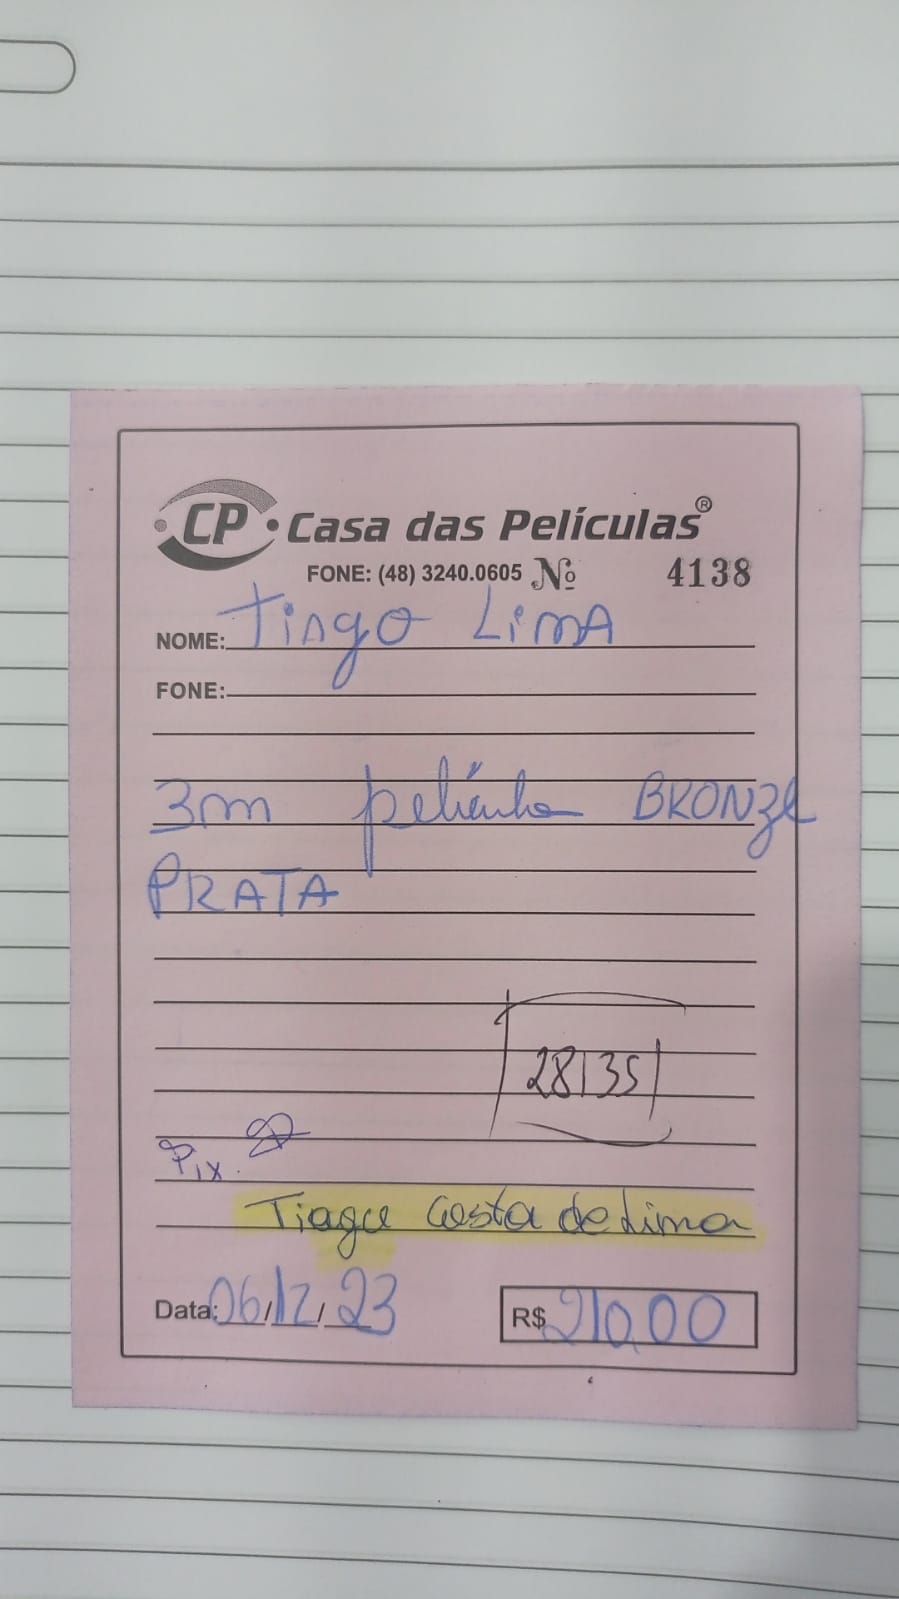 CP Casa das Películas®
FONE: (48) 3240.0605 Nº 4138
NOME: Tiago Lima
FONE:
3m película BRONZE
PRATA
28135
Pix
Tiago Costa de Lima
Data: 06/12/23 R$ 210,00